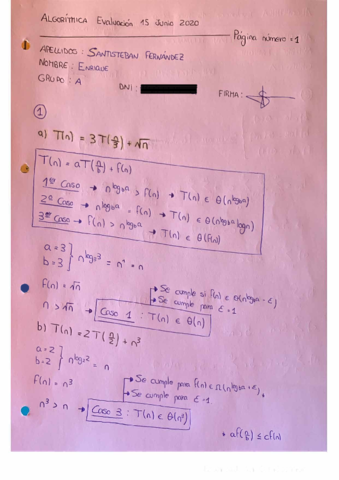 ALGORÍTMICA Evaluación 15 Junio 2020
Página número = 1
APELLIDOS: SANTISTEBAN FERNÁNDEZ
NOMBRE: ENRIQUE
GRUPO: A
DNI:
FIRMA:
1
a) T(n) = 3T(n/3) + √n
T(n) = aT(n/b) + f(n)
1er Caso → n^log_b a > f(n) → T(n) ∈ Θ(n^log_b a)
2º Caso → n^log_b a = f(n) → T(n) ∈ Θ(n^log_b a logn)
3er Caso → f(n) > n^log_b a → T(n) ∈ Θ(f(n))
a = 3
b = 3 } n^log_3 3 = n¹ = n
f(n) = √n
→ Se cumple si f(n) ∈ O(n^log_b a - ε)
→ Se cumple para ε = 1
n > √n → Caso 1 : T(n) ∈ Θ(n)
b) T(n) = 2T(n/2) + n³
a = 2
b = 2 } n^log_2 2 = n
f(n) = n³
→ Se cumple para f(n) ∈ Ω(n^log_b a + ε)
→ Se cumple para ε = 1
n³ > n → Caso 3 : T(n) ∈ Θ(n³)
* af(n/b) ≤ cf(n)